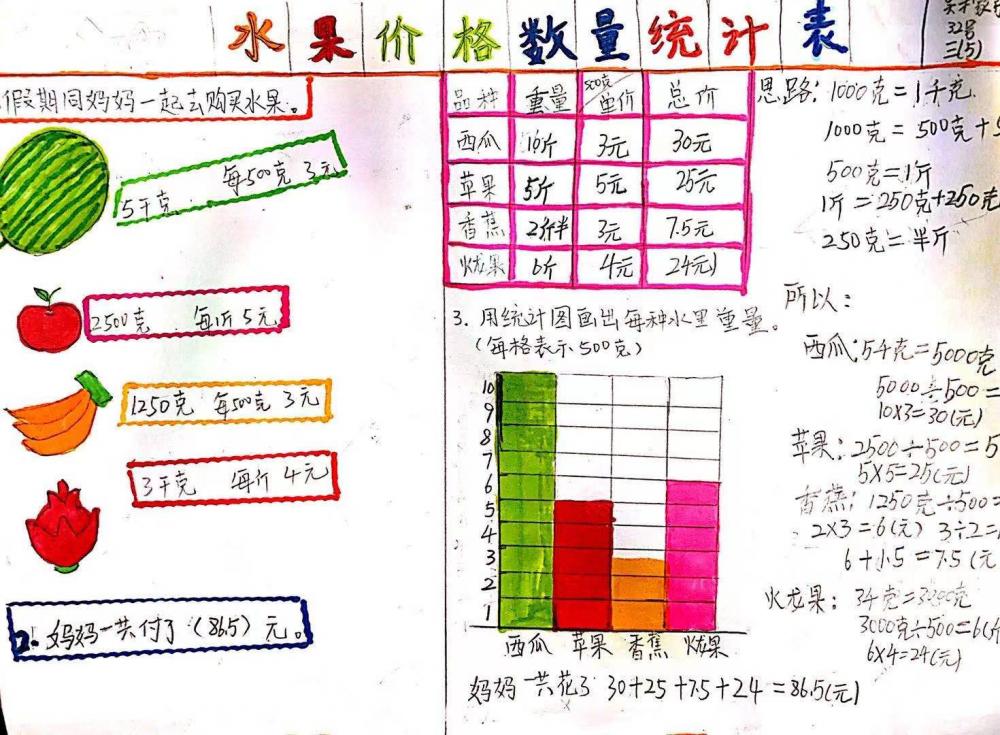 水果价格数量统计表
32号
三(5)
假期同妈妈一起去购买水果。
5千克 每500克 3元
2500克 每斤 5元
1250克 每500克 3元
3千克 每斤 4元
2. 妈妈一共付了（86.5）元。
品种 重量 500克单价 总价
西瓜 10斤 3元 30元
苹果 5斤 5元 25元
香蕉 2斤半 3元 7.5元
火龙果 6斤 4元 24元
3. 用统计图画出每种水果重量。
（每格表示500克）
10
9
8
7
6
5
4
3
2
1
西瓜 苹果 香蕉 火龙果
妈妈一共花了 30+25+7.5+24=86.5(元)
思路：1000克=1千克
1000克=500克+
500克=1斤
1斤=250克+250克
250克=半斤
所以：
西瓜：5千克=5000克
5000÷500=
10×3=30(元)
苹果：2500÷500=5
5×5=25(元)
香蕉：1250克÷500=
2×3=6(元) 3÷2=
6+1.5=7.5(元
火龙果：3千克=3000克
3000克÷500=6(斤
6×4=24(元)